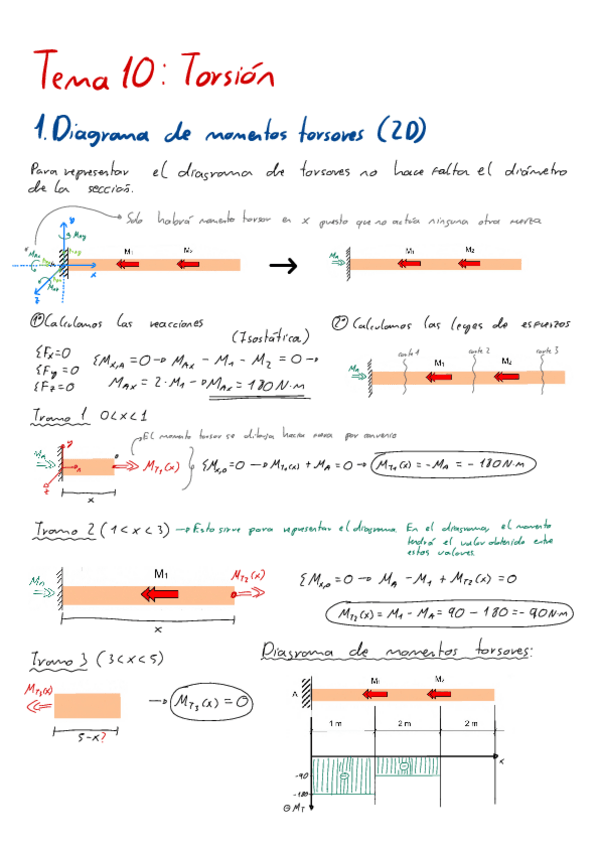 Tema 10: Torsión
1. Diagrama de momentos torsores (2D)
Para representar el diagrama de torsores no hace falta el diámetro
de la sección.
Solo habrá momento torsor en x puesto que no actúa ninguna otra fuerza
M₁ M₂
M_A M₁ M₂
1º Calculamos las reacciones
(Isostática)
ΣFx=0
ΣFy=0
ΣFz=0
ΣM_x,A = 0 → M_Ax - M₁ - M₂ = 0 →
M_Ax = 2·M₁ → M_Ax = 180 N·m
2º Calculamos las leyes de esfuerzos
corte 1 corte 2 corte 3
M_A M₁ M₂
Tramo 1 0<x<1
El momento torsor se dibuja hacia fuera por convenio
M_A M_T1(x)
x
ΣM_x,o = 0 → M_T1(x) + M_A = 0 → M_T1(x) = -M_A = -180 N·m
Tramo 2 (1<x<3) → Esto sirve para representar el diagrama. En el diagrama, el momento
tendrá el valor obtenido entre
estos valores.
M_A M₁ M_T2(x)
x
ΣM_x,o = 0 → M_A - M₁ + M_T2(x) = 0
M_T2(x) = M₁ - M_A = 90 - 180 = -90 N·m
Tramo 3 (3<x<5)
M_T3(x)
5-x?
→ M_T3(x) = 0
Diagrama de momentos torsores:
A M₁ M₂
1 m 2 m 2 m
x
-90
-180
⊖ M_T